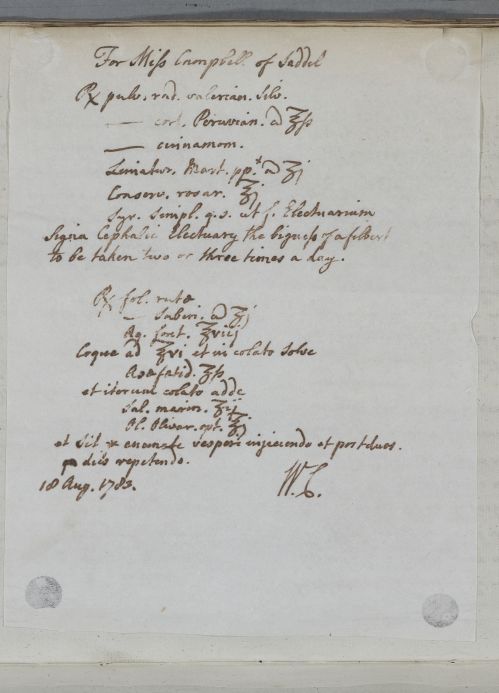 For Miss Campbell of Saddel
℞ pulv. rad. valerian. Silv.
— cort. Peruvian. a ʒſs
— cinnamom.
Limatur. Mart. pp.t a ʒj
Conserv. rosar. ℥j
Syr. Simpl. q.s. ut f. Electuarium
Signa Cephalic Electuary the bigness of a filbert
to be taken two or three times a day.
℞ fol. rutæ
— Sabin. a ʒj
Aq. font. ℥viij
Coque ad ℥vi et in colato Solve
Asafœtid. ʒſs
et iterum colato adde
Sal. marin. ʒij
Ol. Olivar. opt. ℥j
et sit enema vespere injiciendo et post duos
dies repetendo.
18 Aug. 1783. W.C.